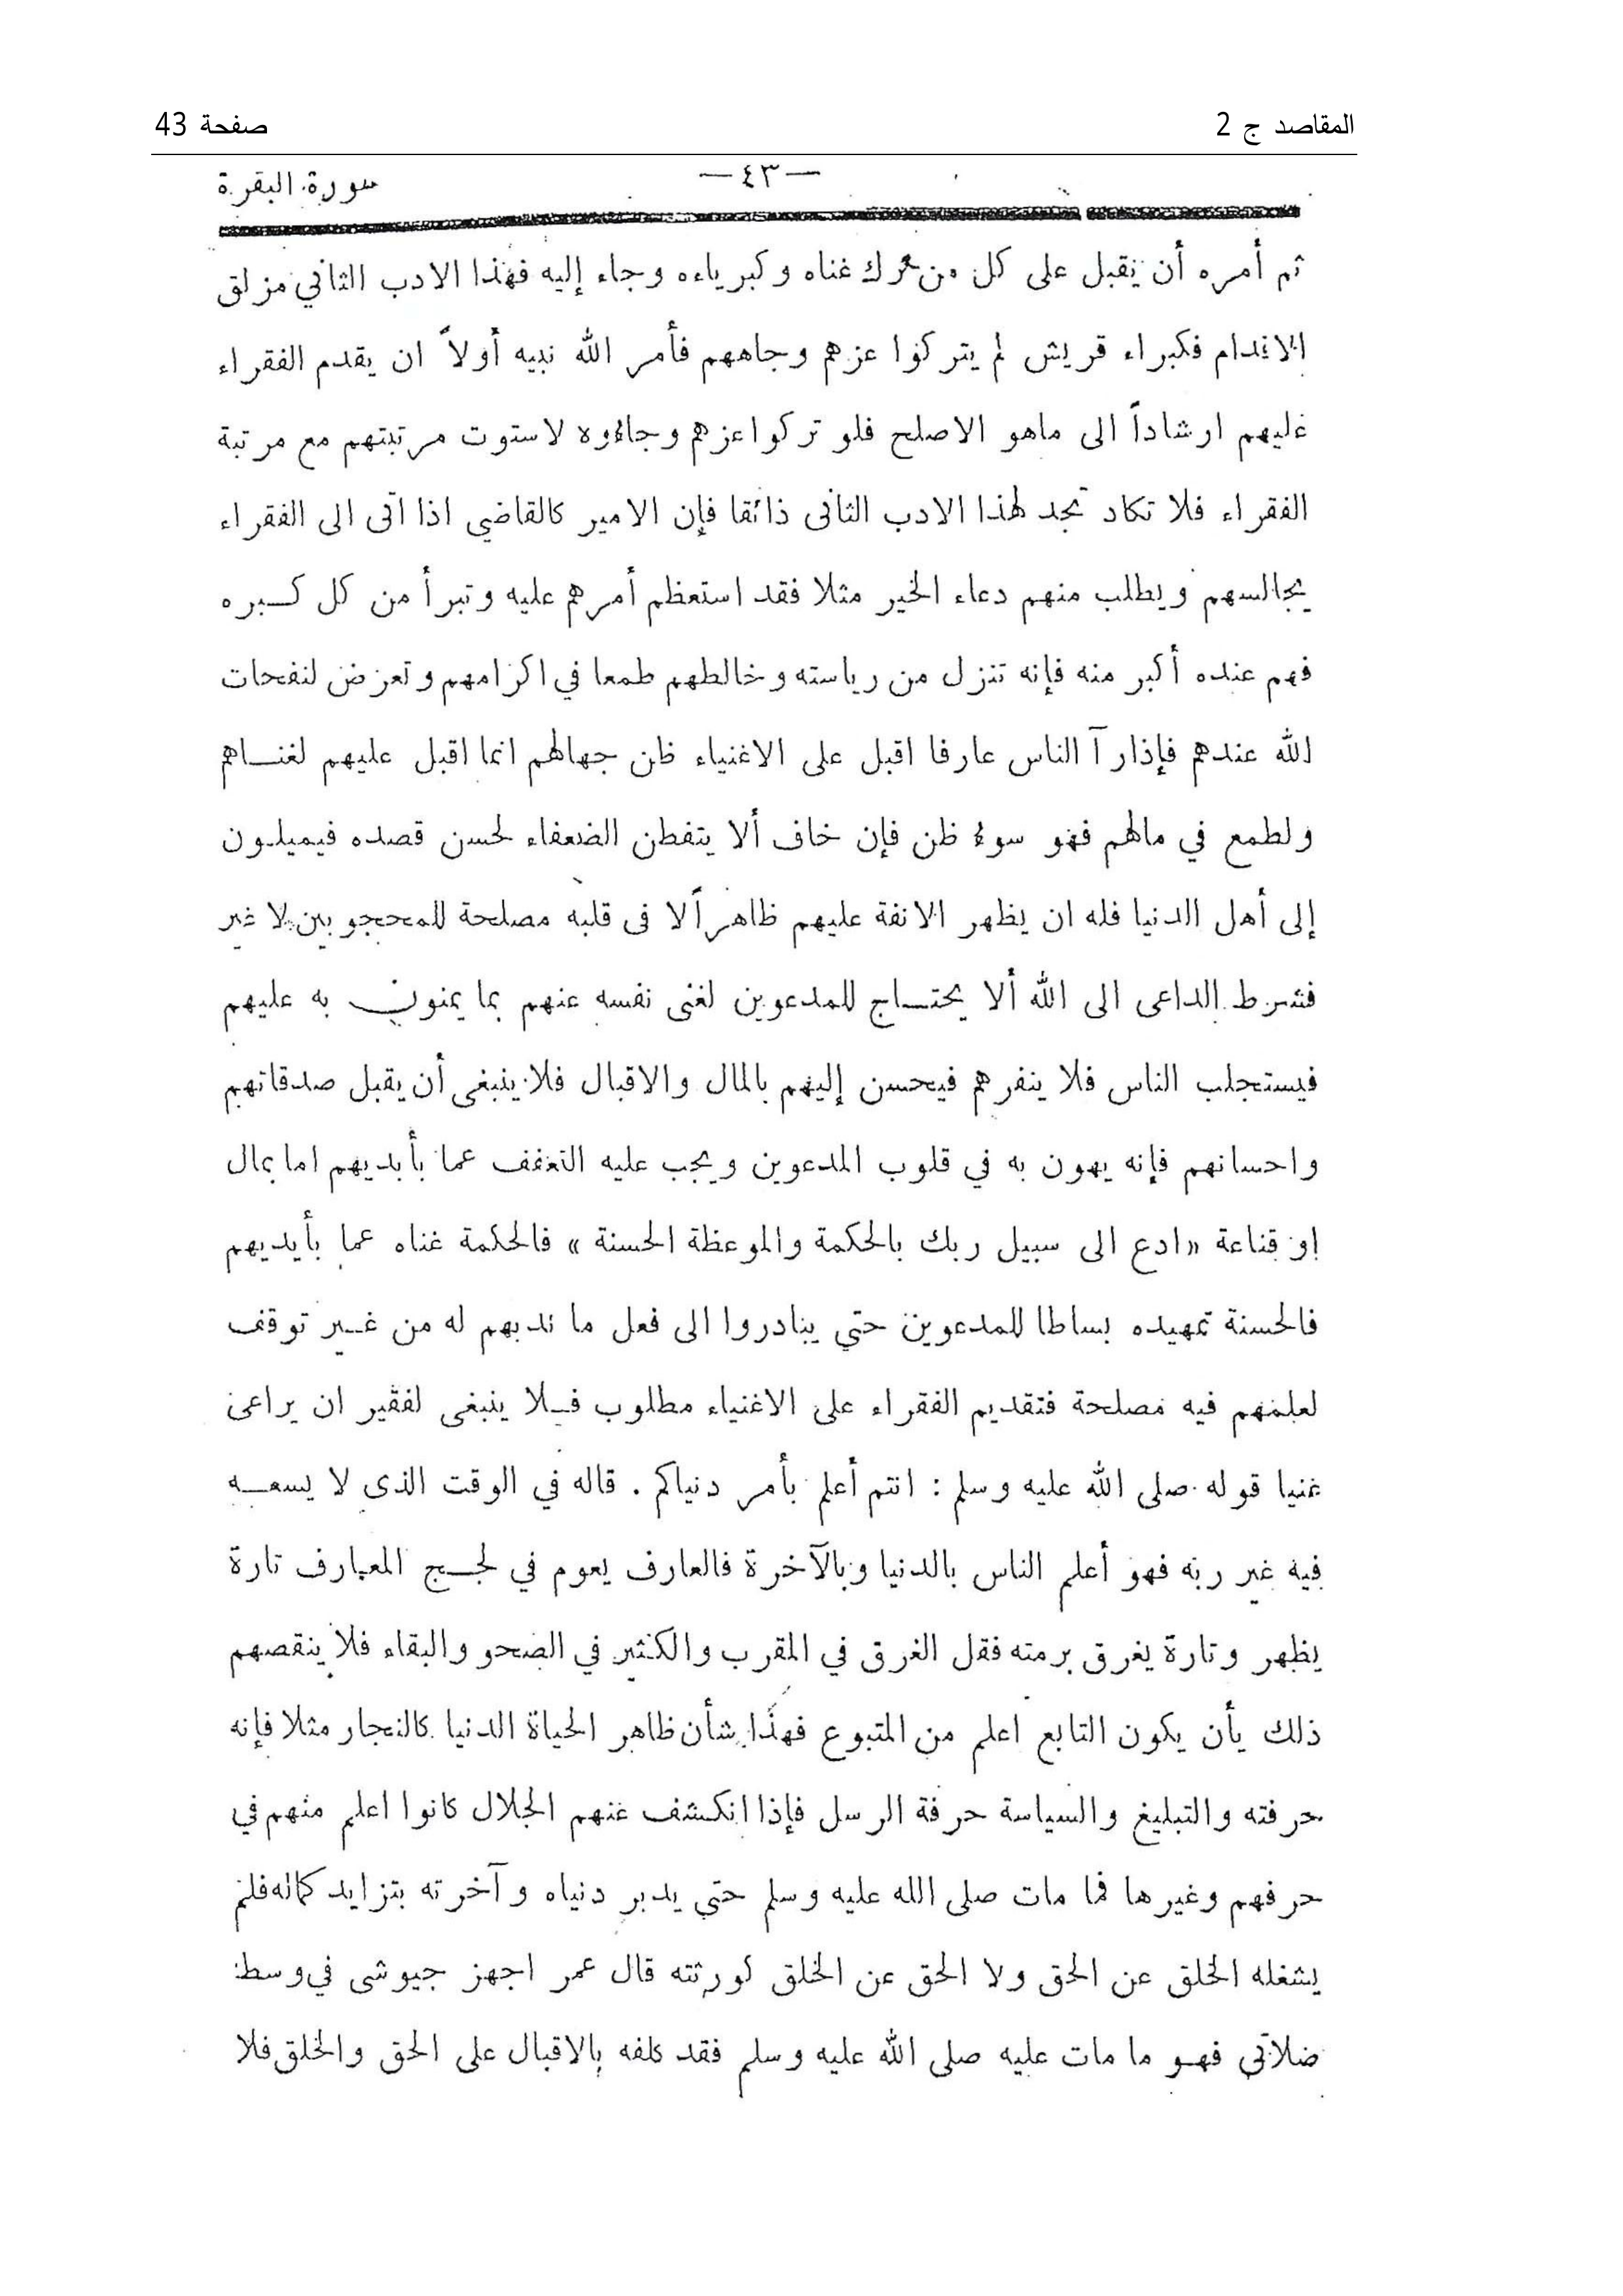 المقاصد ج 2
صفحة 43
— ٤٣ —
سورة البقرة
ثم أمره أن يقبل على كل من ترك غناه وكبرياءه وجاء إليه فهذا الادب الثاني مزلق
الاقدام فكبراء قريش لم يتركوا عزهم وجاههم فأمر الله نبيه أولاً ان يقدم الفقراء
عليهم ارشاداً الى ماهو الاصلح فلو تركوا عزهم وجاءوه لاستوت مرتبتهم مع مرتبة
الفقراء فلا تكاد تجد لهذا الادب الثانى ذائقا فإن الامير كالقاضي اذا اتى الى الفقراء
يجالسهم ويطلب منهم دعاء الخير مثلا فقد استعظم أمرهم عليه وتبرأ من كل كبره
فهم عنده أكبر منه فإنه تنزل من رياسته وخالطهم طمعا في اكرامهم وتعرض لنفحات
الله عندهم فإذا رآ الناس عارفا اقبل على الاغنياء ظن جهالهم انما اقبل عليهم لغناهم
ولطمع في مالهم فهو سوء ظن فإن خاف ألا يتفطن الضعفاء لحسن قصده فيميلون
إلى أهل الدنيا فله ان يظهر الانفة عليهم ظاهراً لا فى قلبه مصلحة للمحجوبين لا غير
فشرط الداعى الى الله ألا يحتاج للمدعوين لغنى نفسه عنهم بما يمنون به عليهم
فيستجلب الناس فلا ينفرهم فيحسن إليهم بالمال والاقبال فلا ينبغى أن يقبل صدقاتهم
واحسانهم فإنه يهون به في قلوب المدعوين ويجب عليه التعفف عما بأيديهم اما بمال
او قناعة «ادع الى سبيل ربك بالحكمة والموعظة الحسنة» فالحكمة غناه عما بأيديهم
فالحسنة تمهيده بساطا للمدعوين حتي يبادروا الى فعل ما ندبهم له من غير توقف
لعلمهم فيه مصلحة فتقديم الفقراء على الاغنياء مطلوب فلا ينبغى لفقير ان يراعى
غنيا قوله صلى الله عليه وسلم : انتم أعلم بأمر دنياكم . قاله في الوقت الذى لا يسعه
فيه غير ربه فهو أعلم الناس بالدنيا وبالآخرة فالعارف يعوم في لجج المعارف تارة
يظهر وتارة يغرق برمته فقل الغرق في المقرب والكثير في الصحو والبقاء فلا ينقصهم
ذلك يأن يكون التابع اعلم من المتبوع فهذا شأن ظاهر الحياة الدنيا كالنجار مثلا فإنه
حرفته والتبليغ والسياسة حرفة الرسل فإذا انكشف عنهم الجلال كانوا اعلم منهم في
حرفهم وغيرها فما مات صلى الله عليه وسلم حتي يدبر دنياه وآخرته بتزايد كماله فلم
يشغله الخلق عن الحق ولا الحق عن الخلق كورثته قال عمر اجهز جيوشى في وسط
صلاتى فهو ما مات عليه صلى الله عليه وسلم فقد كلفه بالاقبال على الحق والخلق فلا